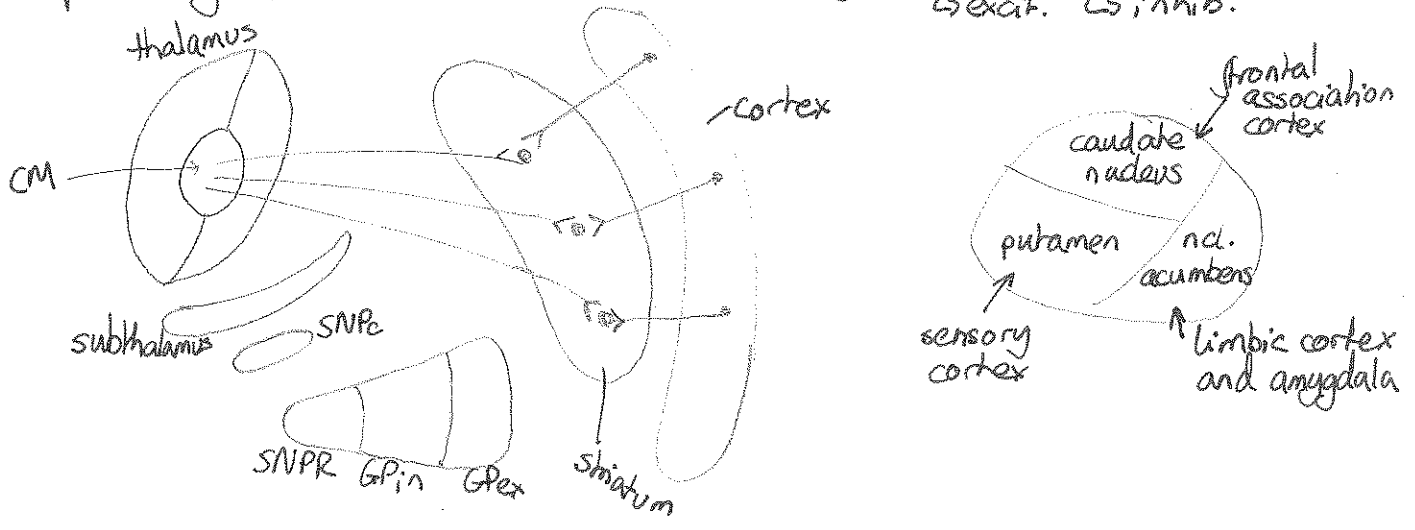 ↳excit. ↳inhib.
thalamus
CM
cortex
subthalamus
SNPc
SNPR
GPin
GPex
striatum
frontal
association
cortex
caudate
nucleus
putamen
ncl.
acumbens
sensory
cortex
limbic cortex
and amygdala